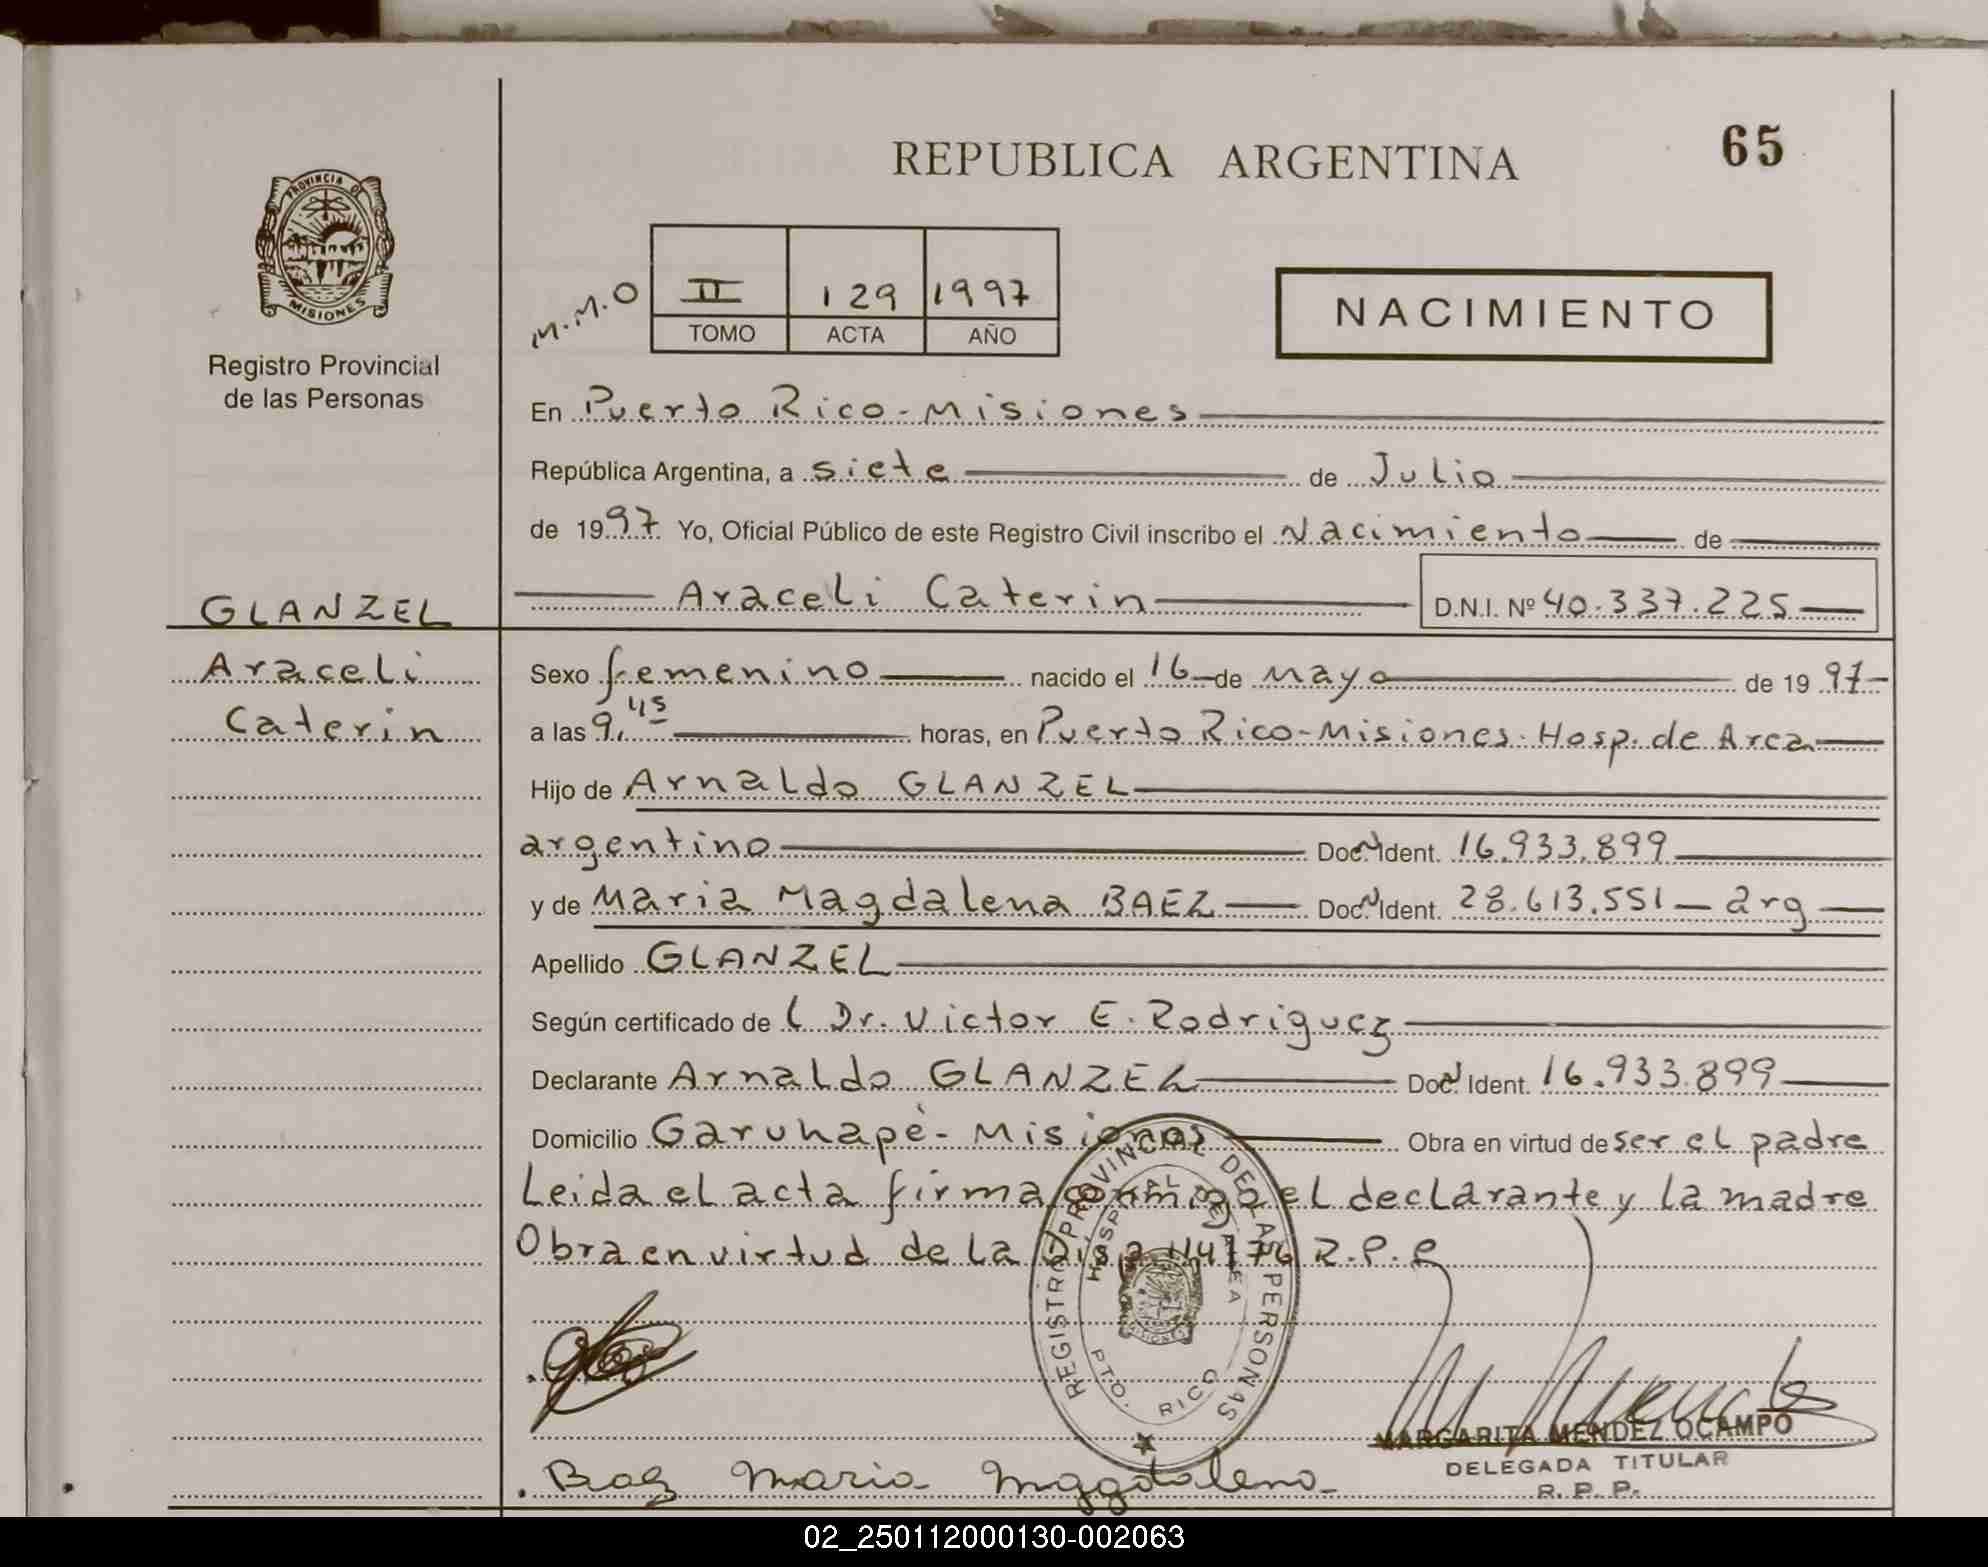 REPUBLICA ARGENTINA
65
PROVINCIA DE
MISIONES
Registro Provincial
de las Personas
M.M.O
II 129 1997
TOMO ACTA AÑO
NACIMIENTO
En Puerto Rico-Misiones
República Argentina, a siete de Julio
de 1997 Yo, Oficial Público de este Registro Civil inscribo el Nacimiento de
GLANZEL
Araceli Caterin D.N.I. Nº 40.337.225
Araceli
Caterin
Sexo femenino nacido el 16 de Mayo de 1997
a las 9,45 horas, en Puerto Rico-Misiones. Hosp. de Area
Hijo de Arnaldo GLANZEL
argentino Doc. Ident. 16.933.899
y de Maria Magdalena BAEZ Doc. Ident. 28.613.551 arg
Apellido GLANZEL
Según certificado de l Dr. Victor E. Rodriguez
Declarante Arnaldo GLANZEL Doc. Ident. 16.933.899
Domicilio Garuhapè-Misiones Obra en virtud de ser el padre
Leida el acta firma conmigo el declarante y la madre
Obra en virtud de la Disp 114/76 R.P.P
REGISTRO PROVINCIAL DE LAS PERSONAS
HOSPITAL DE AREA
MISIONES
PTO. RICO
MARGARITA MENDEZ OCAMPO
DELEGADA TITULAR
R. P. P.
Baez Maria Magdalena
02_250112000130-002063